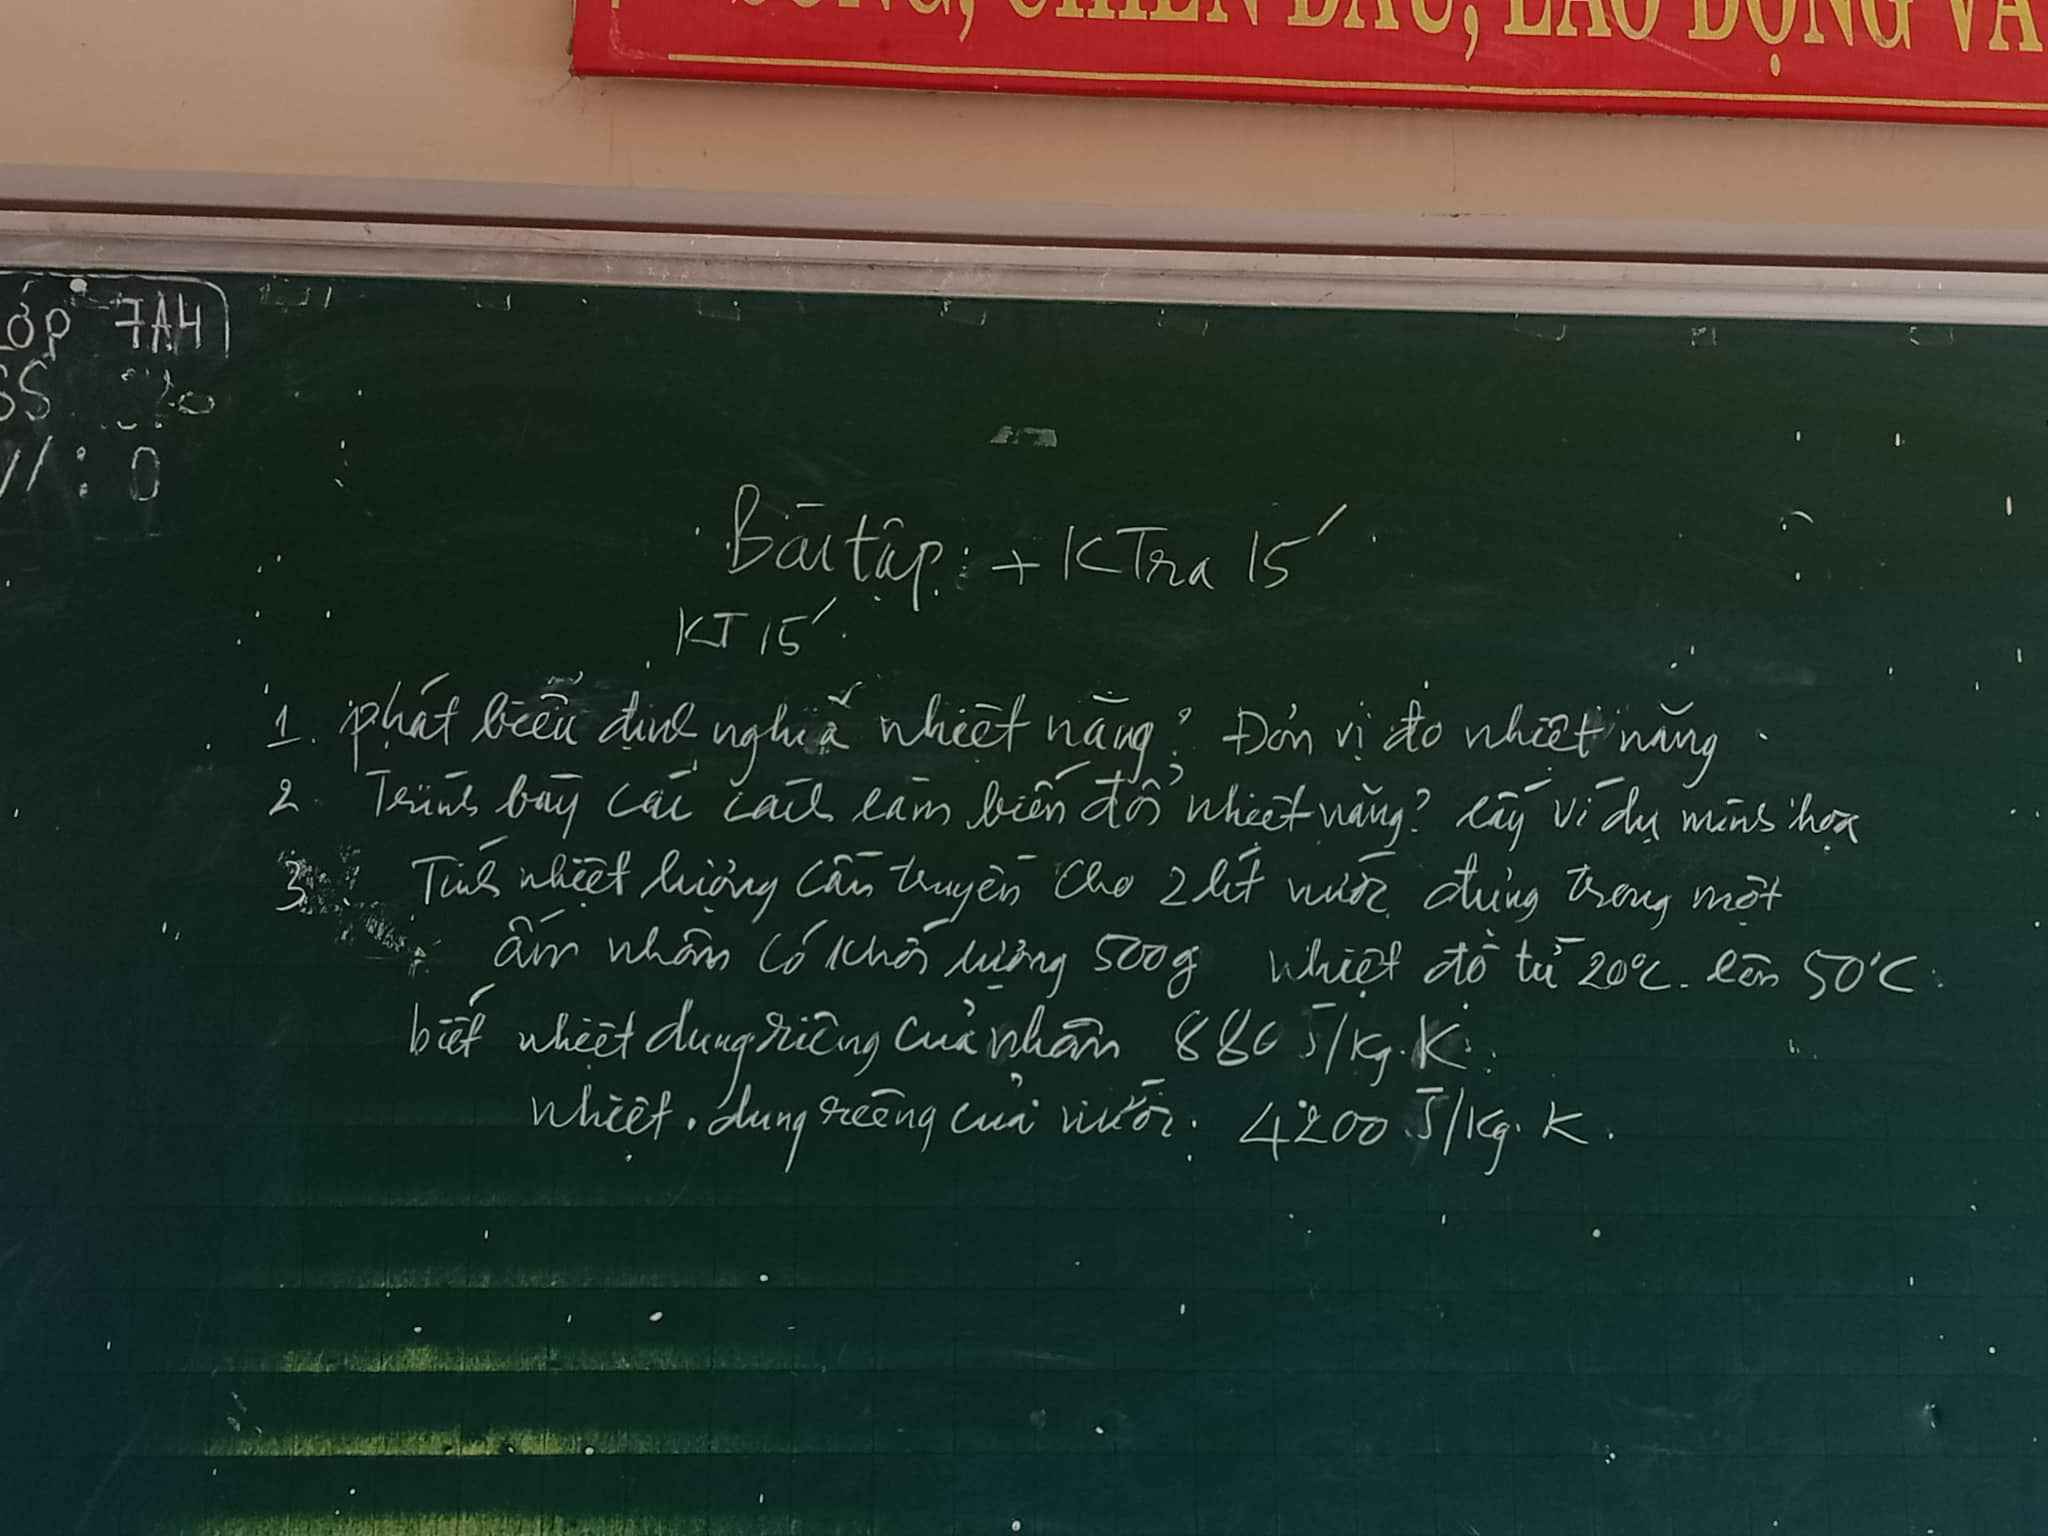 SỐNG, CHIẾN ĐẤU, LAO ĐỘNG VÀ
LỚP 7A4
SS
V : 0
Bài tập : + KTra 15'
KT 15'
1. phát biểu định nghĩa nhiệt năng? Đơn vị đo nhiệt năng.
2. Trình bày các cách làm biến đổi nhiệt năng? lấy ví dụ minh họa
3 Tính nhiệt lượng cần truyền cho 2 lít nước đựng trong một
ấm nhôm có khối lượng 500g nhiệt độ từ 20°C. lên 50°C.
biết nhiệt dung riêng của nhôm 880 J/kg.K.
nhiệt dung riêng của nước. 4200 J/kg.K.